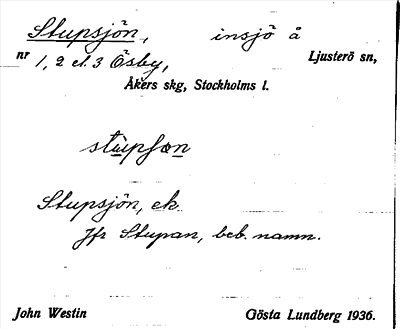 Stupsjön, insjö å
nr 1, 2 el. 3 Ösby, Ljusterö sn,
Åkers skg, Stockholms l.
stùpʃən
Stupsjön, ek
Jfr Stupan, beb. namn.
John Westin Gösta Lundberg 1936.